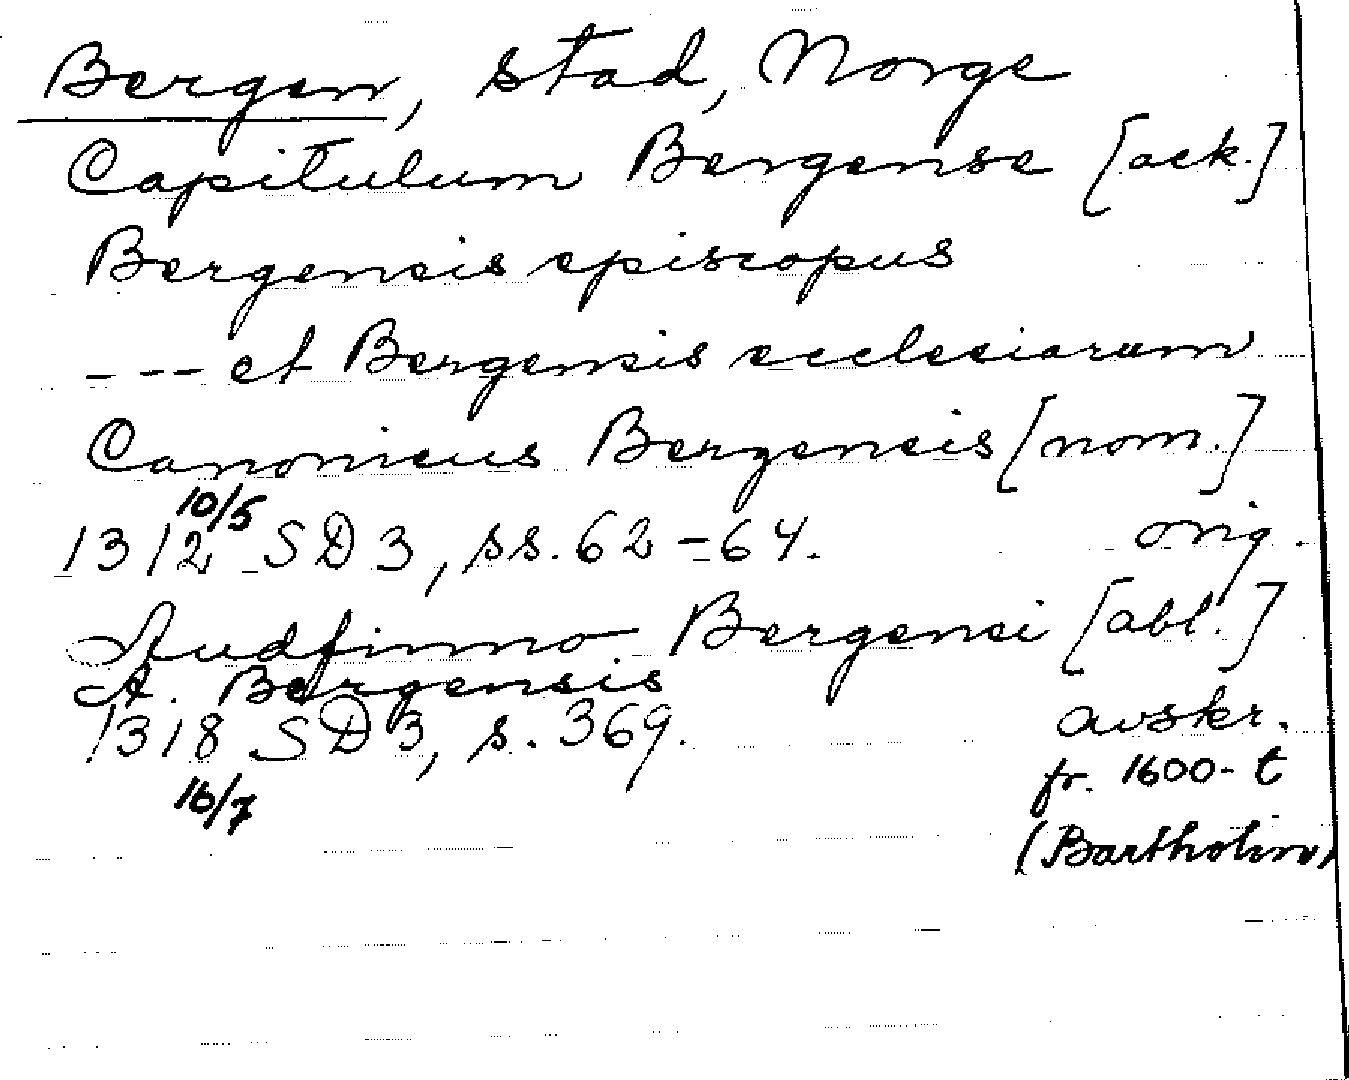 Bergen, stad, Norge
Capitulum Bergense [ack.]
Bergensis episcopus
--- et Bergensis ecclesiarum
Canonicus Bergensis [nom.]
10/5
1312 SD 3, ss. 62-64. orig.
Audfinno Bergensi [abl.]
A. Bergensis
1318 SD 3, s. 369. avskr.
16/7 fr. 1600-t
(Bartholin)